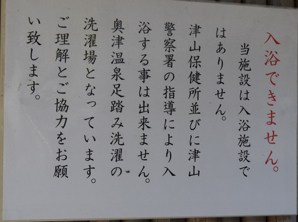 入浴できません。
当施設は入浴施設で
はありません。
津山保健所並びに津山
警察署の指導により入
浴する事は出来ません。
奥津温泉足踏み洗濯の
洗濯場となっています。
ご理解とご協力をお願
い致します。